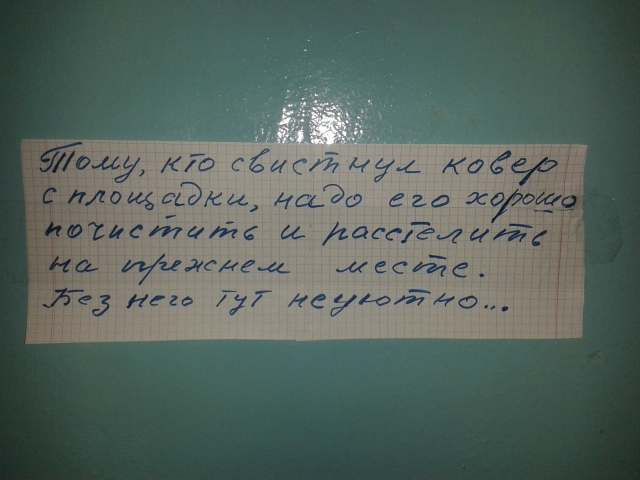 Тому, кто свистнул ковер
с площадки, надо его хорошо
почистить и расстелить
на прежнем месте.
Без него тут неуютно...